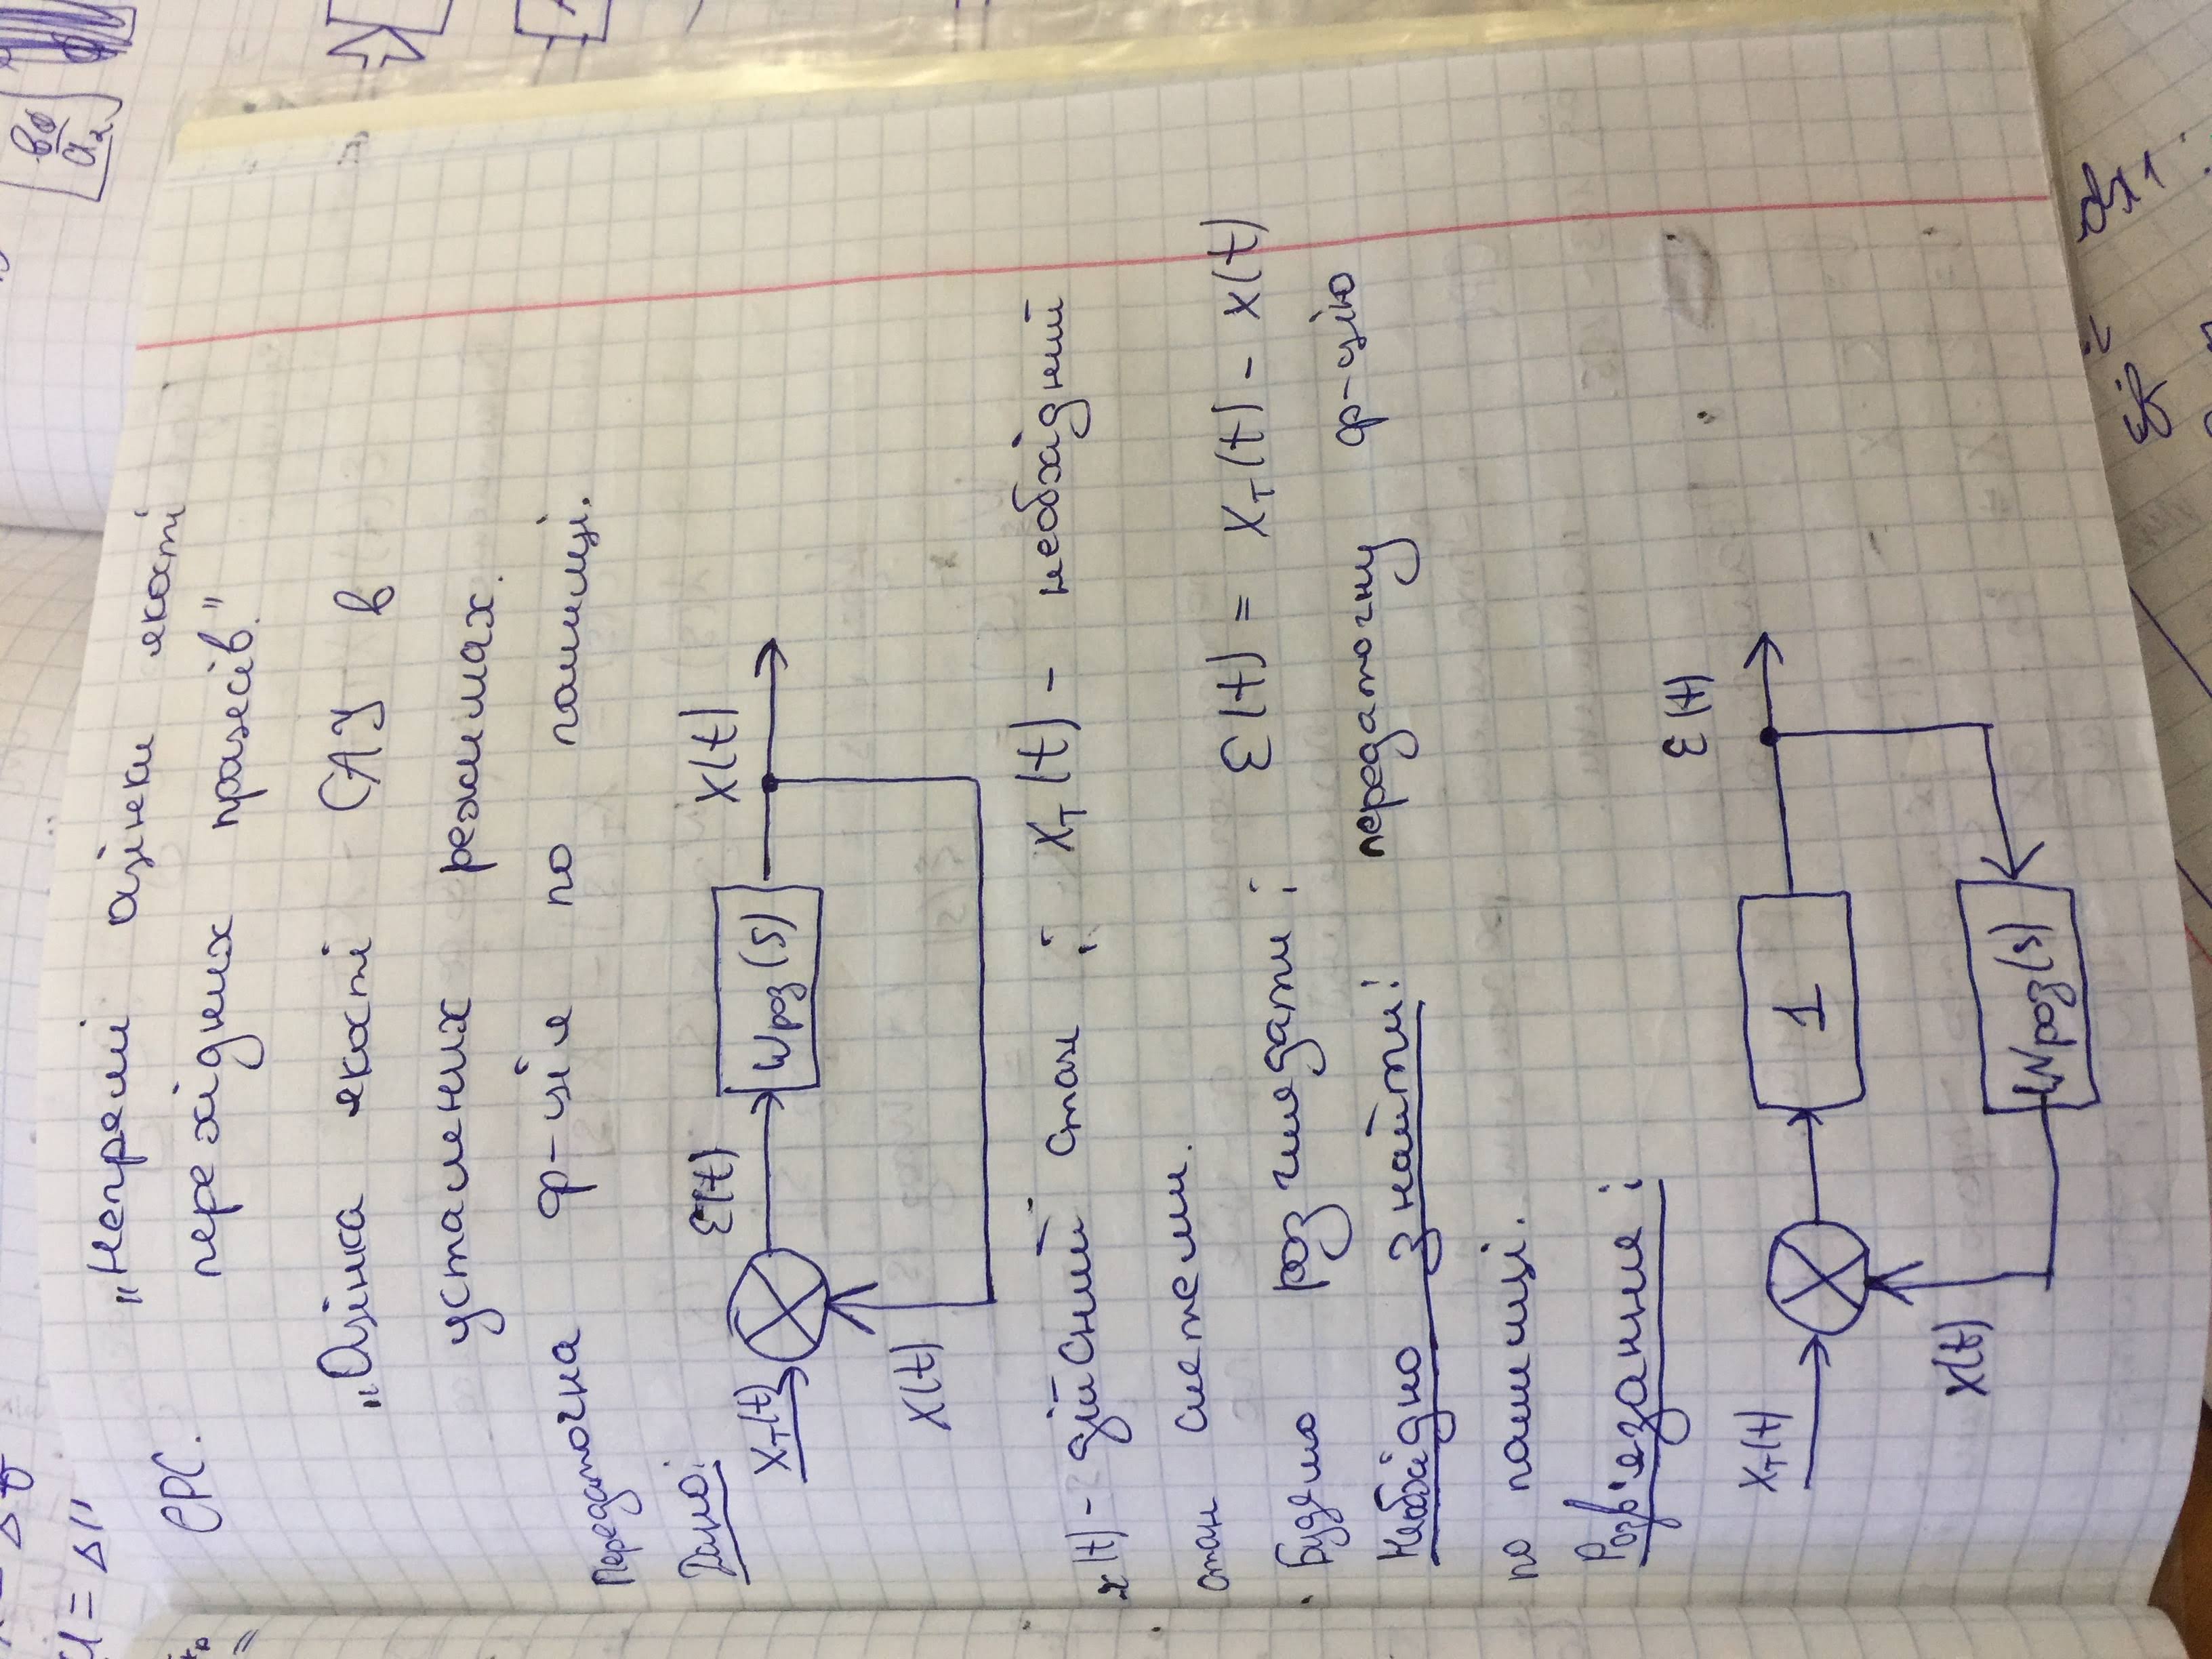 U = ΔU
в0
a2
СРС. „Непрямі оцінки якості
перехідних процесів."
„Оцінка якості САУ в
усталених режимах.
Передаточна ф-ція по помилці.
Дано:
Xт(t) Ɛ(t) Wроз(S) X(t)
X(t)
x(t) - дійсний стан ; Xт(t) - необхідний
стан системи.
Будемо розглядати: Ɛ(t) = Xт(t) - X(t)
Необхідно знайти: передаточну ф-цію
по помилці.
Розв'язання:
Ɛ(t)
Xт(t) 1
X(t) Wроз(s)
dx1